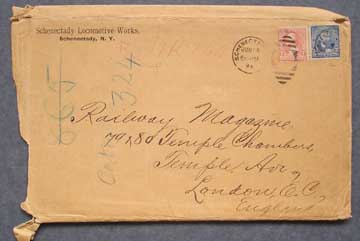 Schenectady Locomotive Works.
Schenectady, N. Y.
SCHENECTADY
665
324
Railway Magazine
79 & 80 Temple Chambers,
Temple Av.,
London, E.C.
England